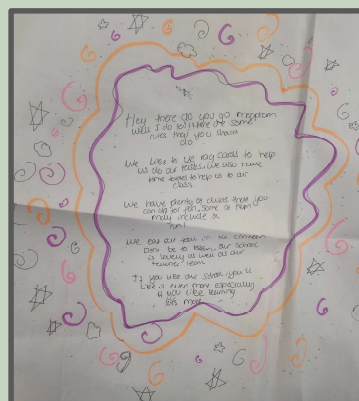 Hey there do you go
well I do so, there are some
rules that you should
do
We like to use rag cards to help
us do our tasks. We also have
time tables to help us to our
class.
We have plenty of clubs that you
can do for fun, some of them
may include a
run!
We eat our food in the canteen
Dont be to, our school
is lovely as well as our
team.
If you like our school you'll
like it even more especially
if you like learning
lots more